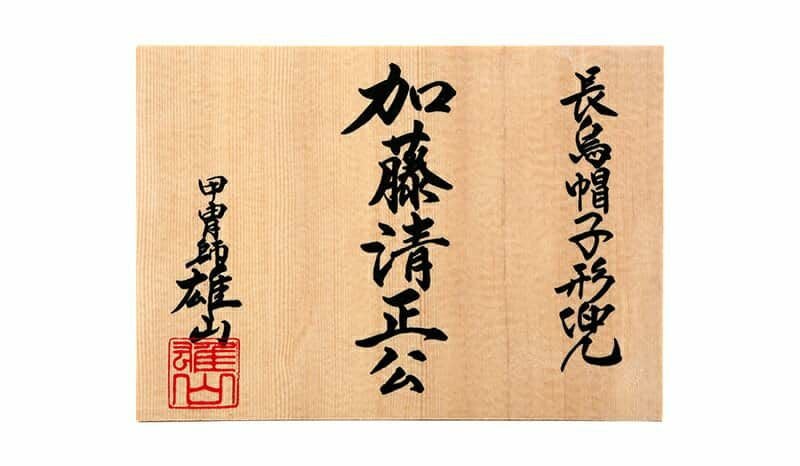 長烏帽子形兜
加藤清正公
甲冑師雄山
雄山